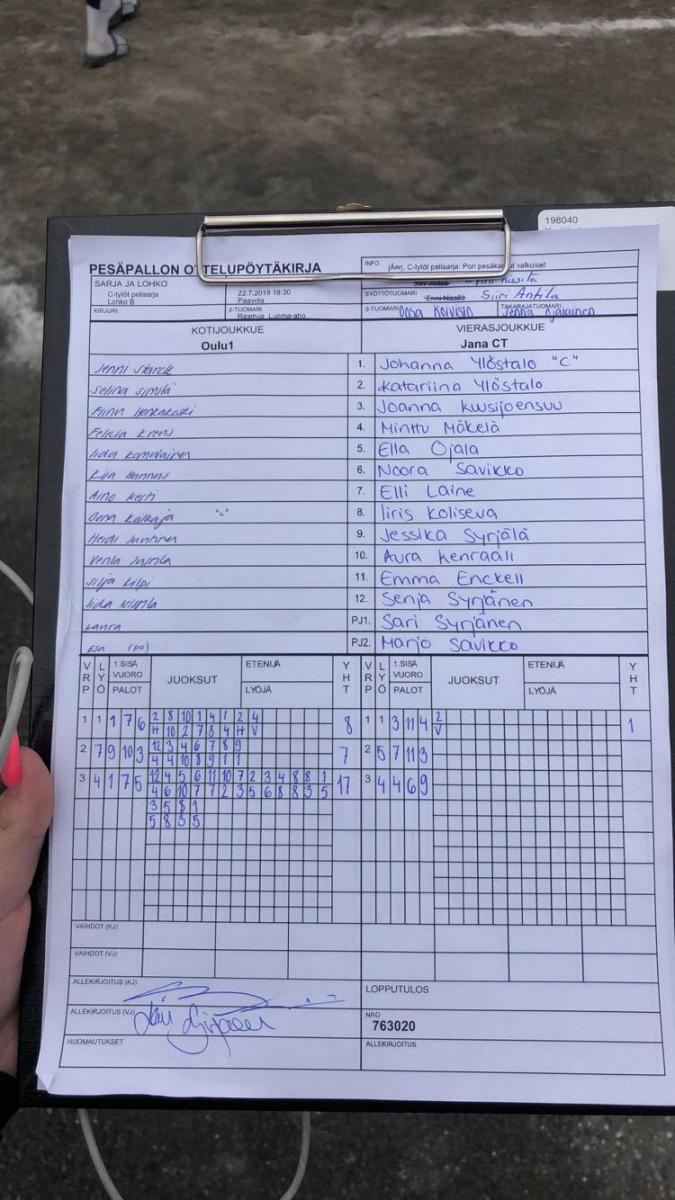 198040
PESÄPALLON OTTELUPÖYTÄKIRJA
INFO jÄrej, C-tytöt pelisarja: Pori pesäkarhut valkoiset
SARJA JA LOHKO
C-tytöt pelisarja
Lohko B
22.7.2019 18:30
Paavola
SYÖTTÖTUOMARI Enni Nissilä Siiri Antila
KIRJURI
2-TUOMARI
Rasmus Luoma-aho
3-TUOMARI Oosa Koivisto
TAKARAJATUOMARI Jenna Ojalainen
KOTIJOUKKUE VIERASJOUKKUE
Oulu1 Jana CT
1. Johanna Ylöstalo "C"
2. Katariina Ylöstalo
3. Joanna Kuusijoensuu
Felicia 4. Minttu Mäkelä
Iida 5. Ella Ojala
6. Noora Savikko
Aino 7. Elli Laine
"C" 8. Iiris Koliseva
Heidi 9. Jessika Syrjälä
Venla 10. Aura Kenraali
Silja Kilpi 11. Emma Enckell
Iida 12. Senja Syrjänen
Laura PJ1. Sari Syrjänen
Esa (PO) PJ2. Marjo Savikko
VRP LYÖ 1.SISÄ VUORO PALOT JUOKSUT ETENIJÄ LYÖJÄ YHT VRP LYÖ 1.SISÄ VUORO PALOT JUOKSUT ETENIJÄ LYÖJÄ YHT
1 1 1 7 6 2 8 10 1 4 1 2 4 8 1 1 3 11 4 2 1
H 10 2 7 8 4 H V V
2 7 9 10 3 12 3 4 6 7 8 9 7 2 5 7 11 3
4 4 10 8 9 1 1
3 4 1 7 5 12 4 5 6 11 10 7 2 3 4 8 8 1 17 3 4 4 6 9
4 6 10 7 7 2 3 5 6 8 8 3 5
3 5 8 1
5 8 3 5
VAIHDOT (KJ)
VAIHDOT (VJ)
ALLEKIRJOITUS (KJ)
LOPPUTULOS
ALLEKIRJOITUS (VJ)
NRO
763020
HUOMAUTUKSET
ALLEKIRJOITUS